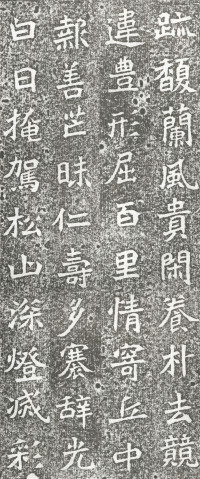 疏馥蘭風貴閑養朴去競
違豊形屈百里情寄丘中
報善芒昧仁壽多褰辭光
白日掩駕松山深燈滅彩